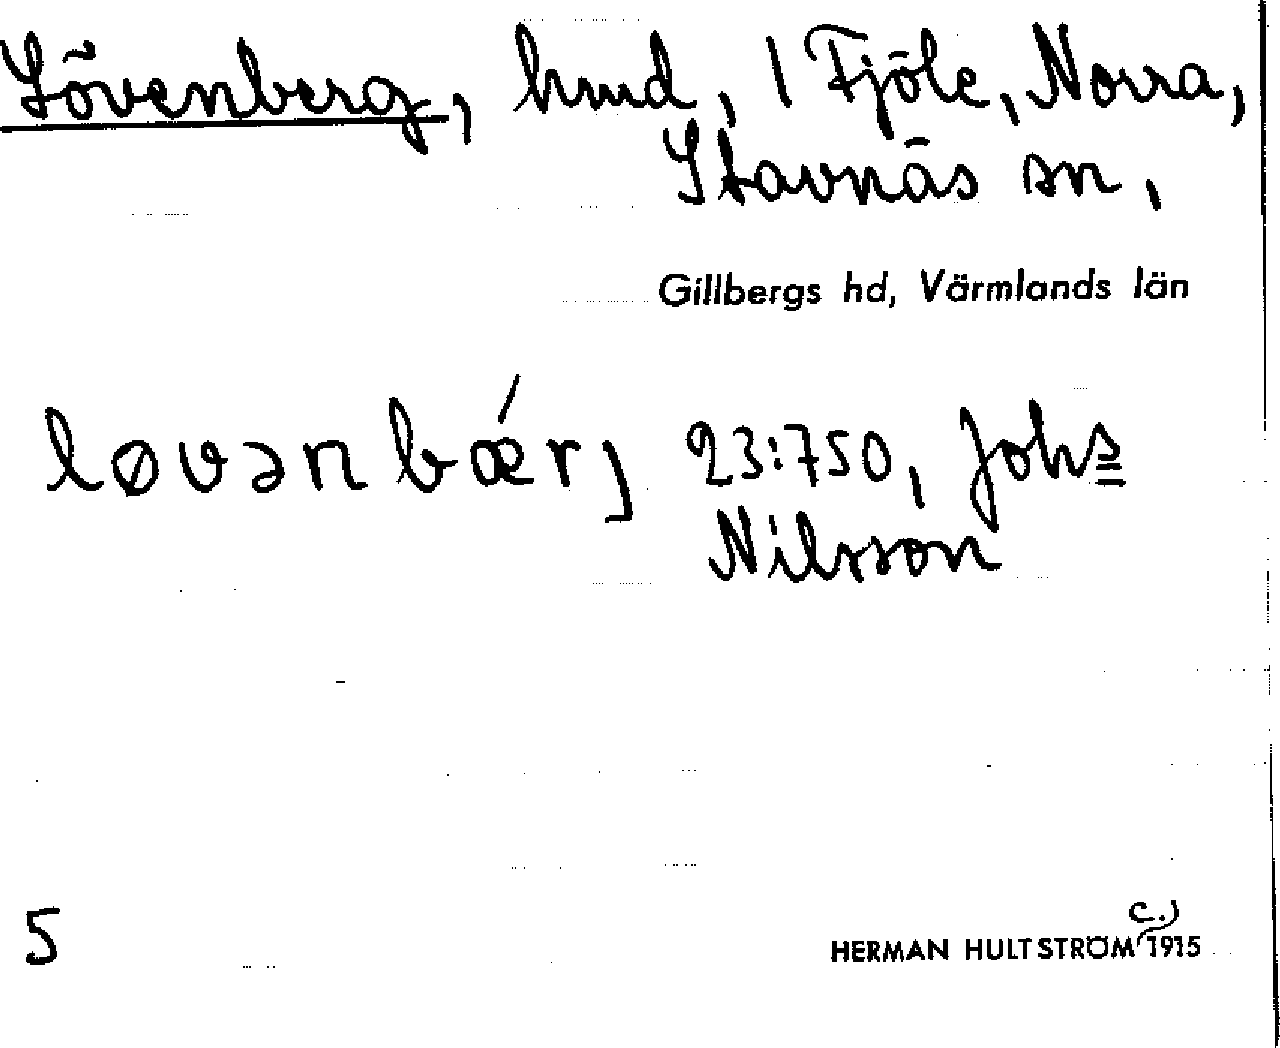 Lövenberg, hmd, 1 Fjöle, Norra,
Stavnäs sn,
Gillbergs hd, Värmlands län
løvənbǽrj 23:750, Johs
Nilsson
5
c.)
HERMAN HULTSTRÖM 1915